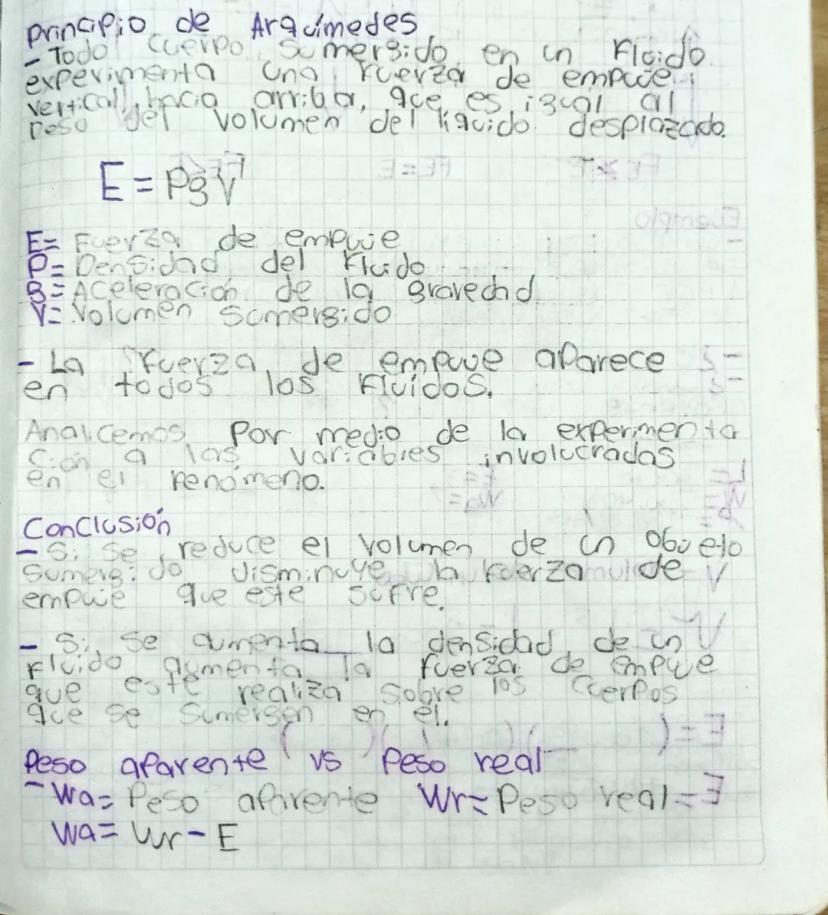 Principio de Arquimedes
- Todo cuerpo sumergido en un fluido
experimenta una fuerza de empuje
vertical, hacia arriba, que es igual al
peso del volumen del liquido desplazado.
E = Pg V
E= Fuerza de empuje
P= Densidad del fluido
g= Aceleración de la gravedad
V= Volumen sumergido
- La fuerza de empuje aparece
en todos los fluidos.
Analicemos por medio de la experimenta
ción a las variables involucradas
en el fenómeno.
Conclusión
- Si se reduce el volumen de un objeto
sumergido disminuye la fuerza de
empuje que este sufre.
- Si se aumenta la densidad de un
fluido aumenta la fuerza de empuje
que este realiza sobre los cuerpos
que se sumergen en el.
Peso aparente vs Peso real
- Wa= Peso aparente Wr= Peso real
Wa= Wr - E